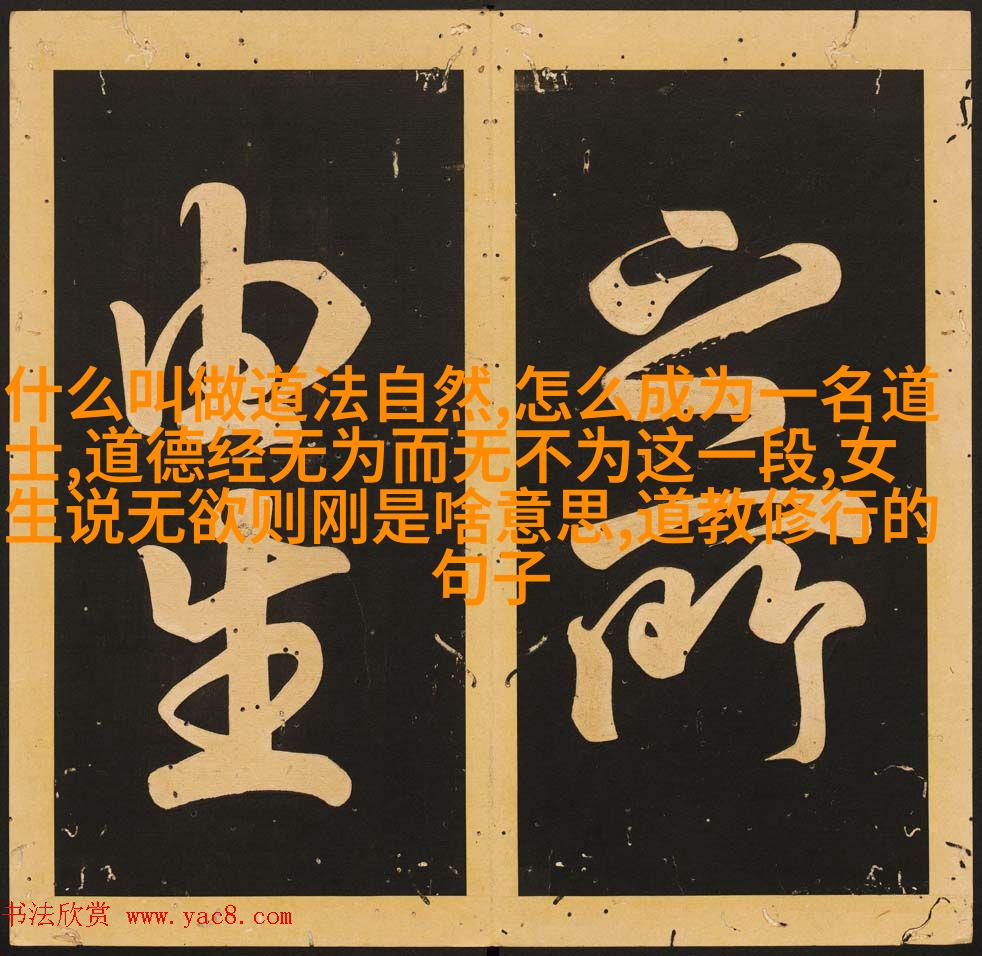 之所
由生
什么叫做道法自然,怎么成为一名道
士,道德经无为而无不为这一段,女
生说无欲则刚是啥意思,道教修行的
句子
书法欣赏 www.yac8.com